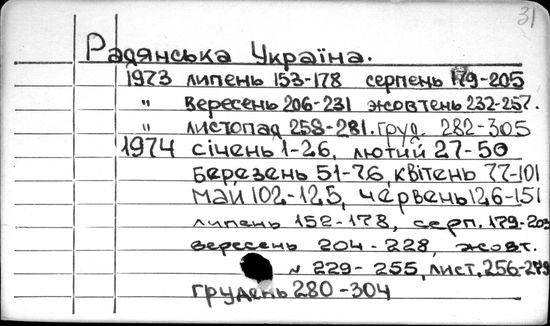 31
Радянська Україна.
1973 липень 153-178 серпень 179-205
" вересень 206-231 жовтень 232-257.
" листопад 258-281. груд. 282-305
1974 січень 1-26, лютий 27-50
березень 51-76, квітень 77-101
май 102-125, червень 126-151
липень 152-178, серп. 179-203
вересень 204-228, жовт.
№ 229-255, лист. 256-279
грудень 280-304